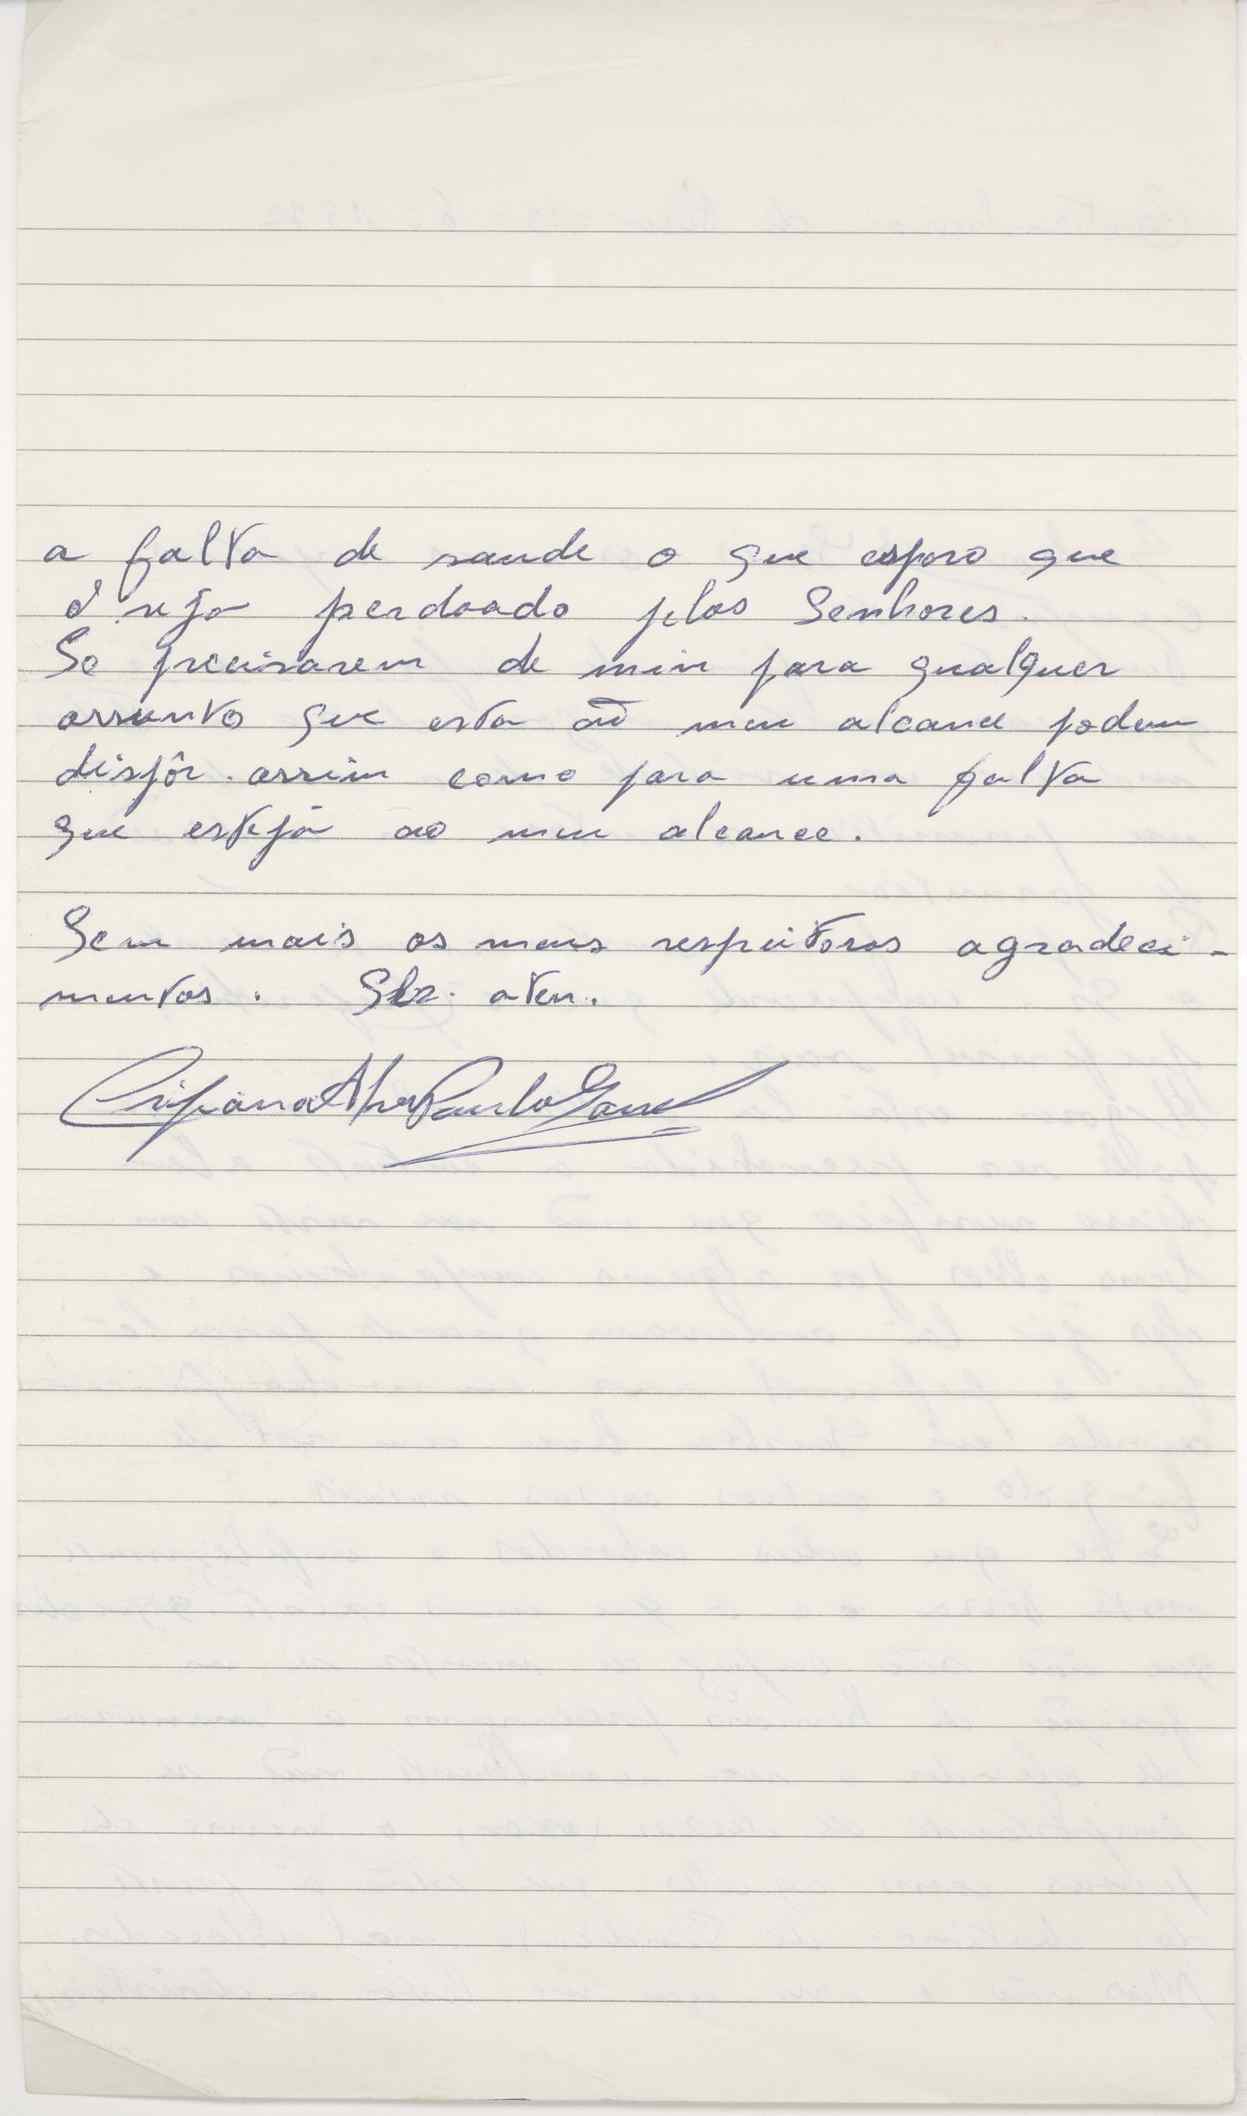 a falta de saude o que espero que
é seja perdoado pelos Senhores.
Se precisarem de mim para qualquer
assunto que esta ao meu alcance podem
dispôr. assim como para uma falta
que esteja ao meu alcance.
Sem mais os meus respeitosos agradeci-
mentos. aten.